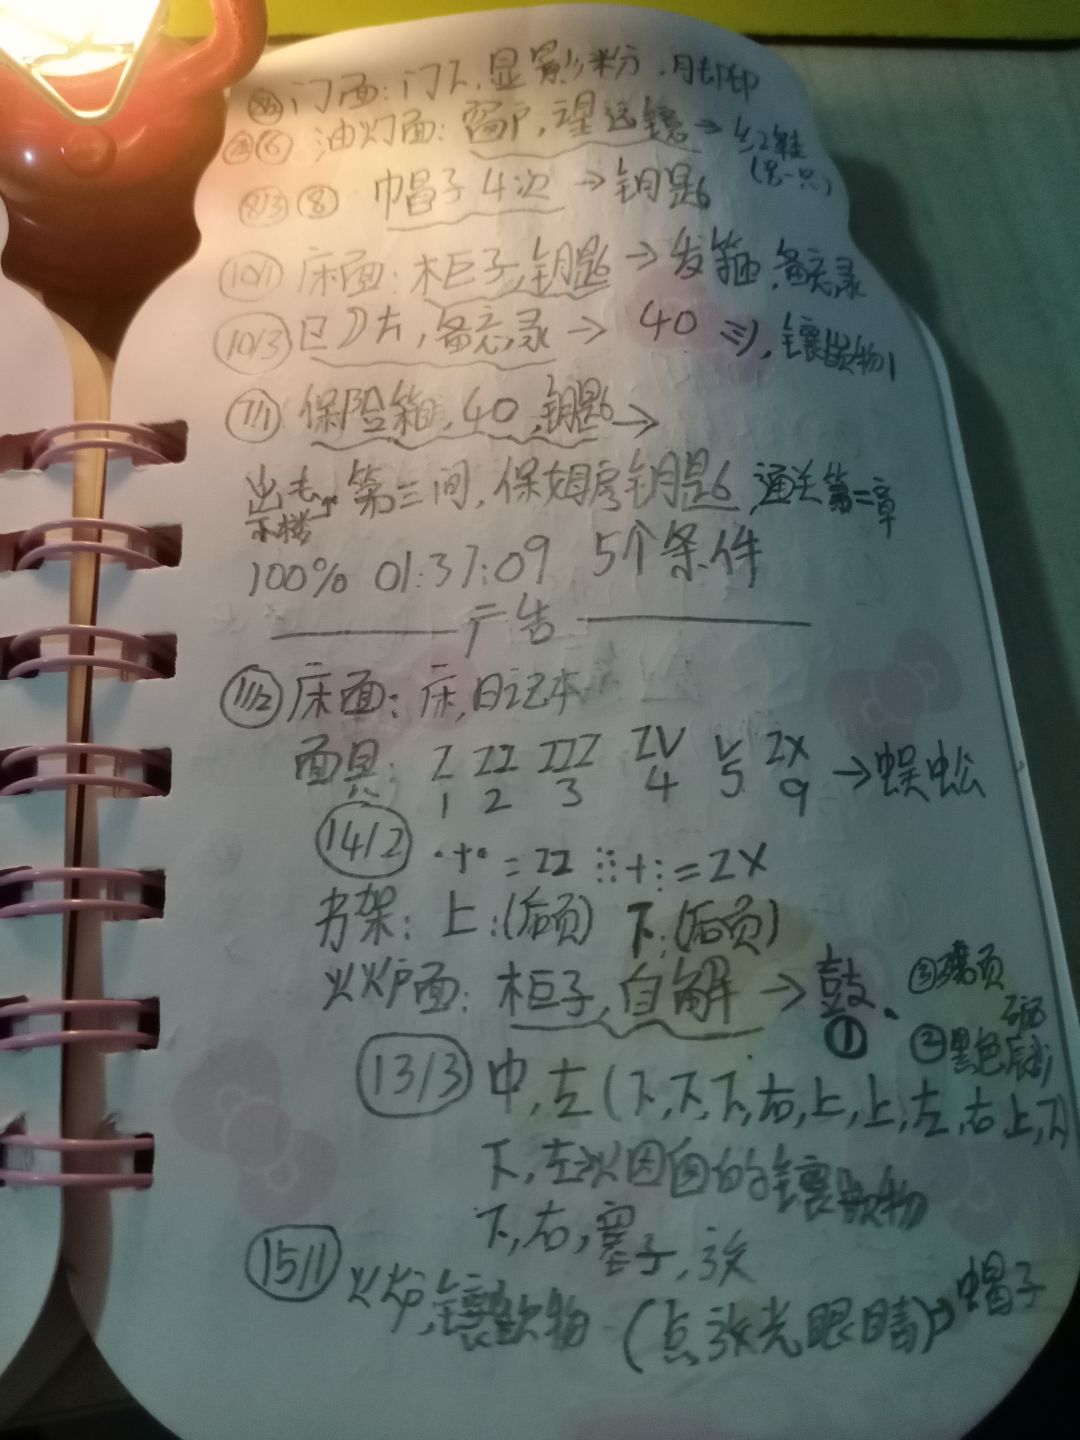 门面:门下,显影粉,脚印
⑥ 油灯面:窗户,望远镜→红鞋
(另一只)
8/3 ⑧ 帽子4次→钥匙
10/1 床面:柜子,钥匙→发箍,备忘录
10/3 巨刀片,备忘录→40 彡,镶嵌物1
7/1 保险箱,40,钥匙→
出去,第三间,保姆房钥匙,通关第二章
下楼
100% 01:37:09 5个条件
广告
11/2 床面:床,日记本
面具: I II III IV V IX →蜈蚣
1 2 3 4 5 9
14/2 = II = IX
书架:上:(后页) 下:(后页)
火炉面:柜子,自解→鼓. ③
① ②黑色
13/3 中,左(下,下,下,右,上,上,左,右,上,下)
下,左 因面的镶嵌物
下,右,塞子,放
15/1 火炉,镶嵌物 (点放光眼睛)→帽子